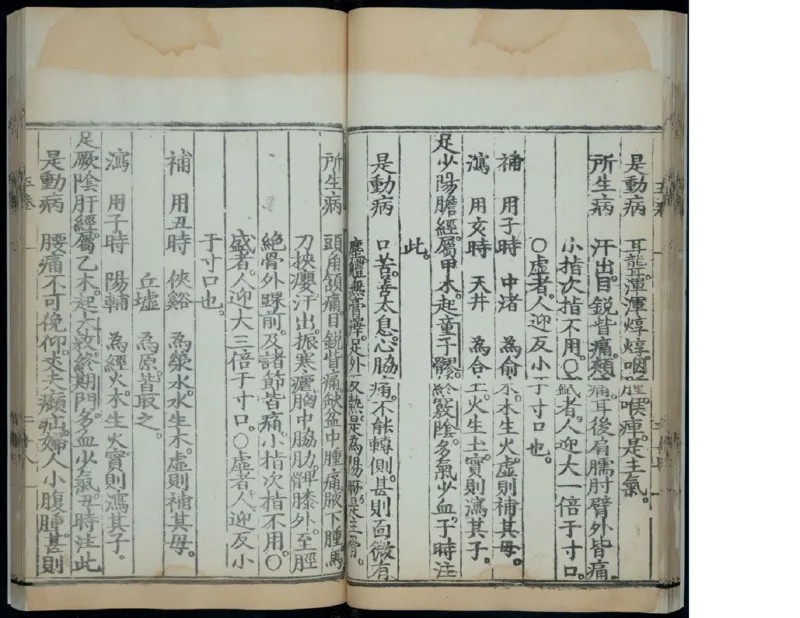 是動病 耳聾。渾渾焞焞。咽腫。喉痺。是主氣。
所生病 汗出。目銳眥痛。頰痛。耳後肩臑肘臂外皆痛。
小指次指不用。○盛者。人迎大一倍于寸口。
○虛者。人迎反小于寸口也。
補 用子時 中渚 為俞木。木生火。虛則補其母。
瀉 用亥時 天井 為合土。火生土。實則瀉其子。
足少陽膽經。屬甲木。起童子髎。終竅陰。多氣少血。子時注
此。
是動病 口苦。善太息。心脇痛。不能轉側。甚則面微有
塵。體無膏澤。足外反熱。是為陽厥。是主骨。
所生病 頭角頷痛。目銳眥痛。缺盆中腫痛。腋下腫。馬
刀挾癭。汗出。振寒。瘧。胸中脇肋。髀膝外。至脛
絕骨外踝前。及諸節皆痛。小指次指不用。○
盛者。人迎大三倍于寸口。○虛者。人迎反小
于寸口也。
補 用丑時 俠谿 為滎水。水生木。虛則補其母。
丘墟 為原。皆取之。
瀉 用子時 陽輔 為經火。木生火。實則瀉其子。
足厥陰肝經。屬乙木。起大敦。終期門。多血少氣。丑時注此
是動病 腰痛不可俛仰。丈夫㿗疝。婦人小腹腫。甚則